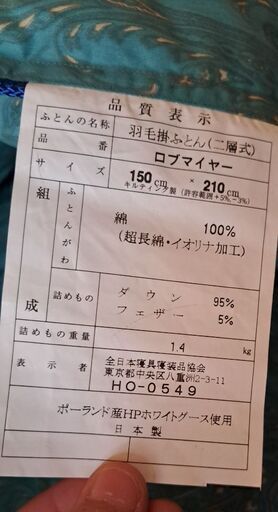 品質表示
ふとんの名称 羽毛掛ふとん(二層式)
品番 ロブマイヤー
サイズ 150cm × 210cm
キルティング製 (許容範囲+5%,-3%)
組成 ふとんがわ 綿 100%
(超長綿・イオリナ加工)
詰めもの ダウン 95%
フェザー 5%
詰めもの重量 1.4 kg
表示者 全日本寝具寝装品協会
東京都中央区八重洲2-3-11
HO-0549
ポーランド産HPホワイトグース使用
日本製